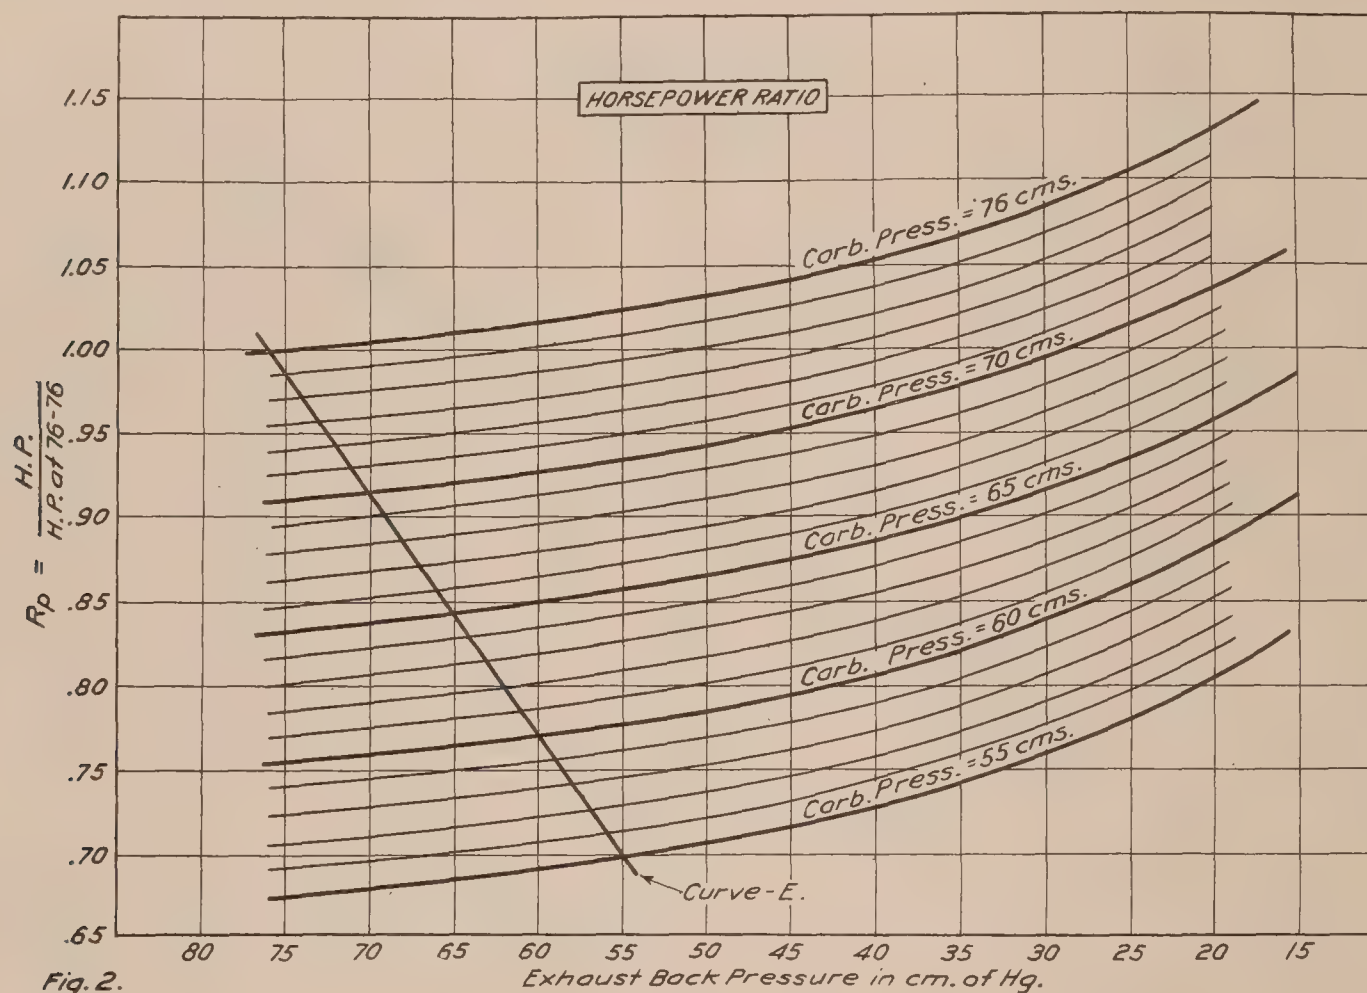 HORSEPOWER RATIO
1.15
1.10
1.05
1.00
.95
.90
.85
.80
.75
.70
.65
Rp = H.P. / H.P. at 76-76
Carb. Press. = 76 cms.
Carb. Press. = 70 cms.
Carb. Press. = 65 cms.
Carb. Press. = 60 cms.
Carb. Press. = 55 cms.
Curve-E.
80 75 70 65 60 55 50 45 40 35 30 25 20 15
Exhaust Back Pressure in cm. of Hg.
Fig. 2.